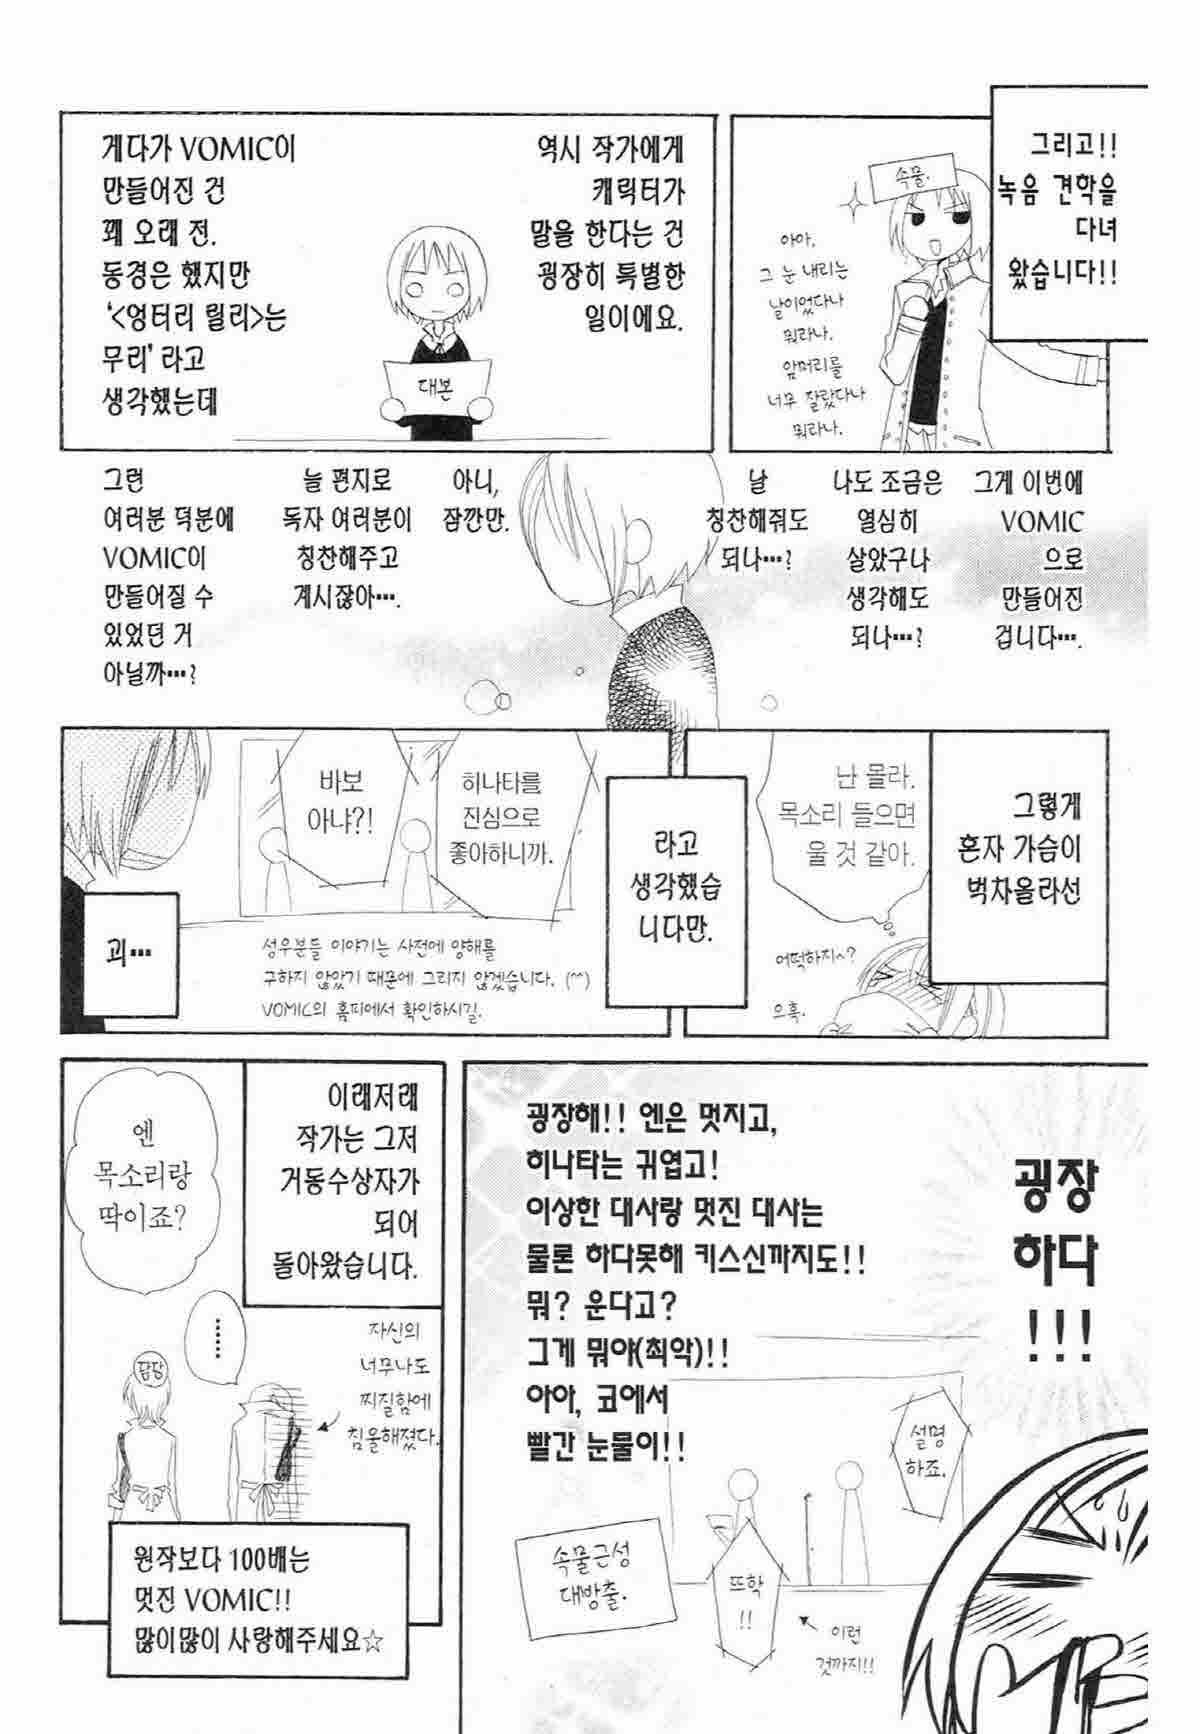 그리고!!
녹음 견학을
다녀
왔습니다!!
속물.
아아,
그 눈 내리는
날이었다나
뭐라나.
앞머리를
너무 잘랐다나
뭐라나.
역시 작가에게
캐릭터가
말을 한다는 건
굉장히 특별한
일이에요.
대본
게다가 VOMIC이
만들어진 건
꽤 오래 전.
동경은 했지만
‘<엉터리 릴리>는
무리’라고
생각했는데
그게 이번에
VOMIC
으로
만들어진
겁니다….
나도 조금은
열심히
살았구나
생각해도
되나…?
날
칭찬해줘도
되나…?
아니,
잠깐만.
늘 편지로
독자 여러분이
칭찬해주고
계시잖아….
그런
여러분 덕분에
VOMIC이
만들어질 수
있었던 거
아닐까…?
그렇게
혼자 가슴이
벅차올라선
난 몰라.
목소리 들으면
울 것 같아.
어떡하지~?
으흑.
라고
생각했습
니다만.
히나타를
진심으로
좋아하니까.
바보
아냐?!
성우분들 이야기는 사전에 양해를
구하지 않았기 때문에 그리지 않겠습니다. (^^)
VOMIC의 홈피에서 확인하시길.
괴…
굉장
하다
!!!
굉장해!! 엔은 멋지고,
히나타는 귀엽고!
이상한 대사랑 멋진 대사는
물론 하다못해 키스신까지도!!
뭐? 운다고?
그게 뭐야(최악)!!
아아, 코에서
빨간 눈물이!!
설명
하죠.
뜨학
!!
이런
것까지!!
속물근성
대방출.
이래저래
작가는 그저
거동수상자가
되어
돌아왔습니다.
엔
목소리랑
딱이죠?
……
담당
자신의
너무나도
찌질함에
침울해졌다.
원작보다 100배는
멋진 VOMIC!!
많이많이 사랑해주세요☆